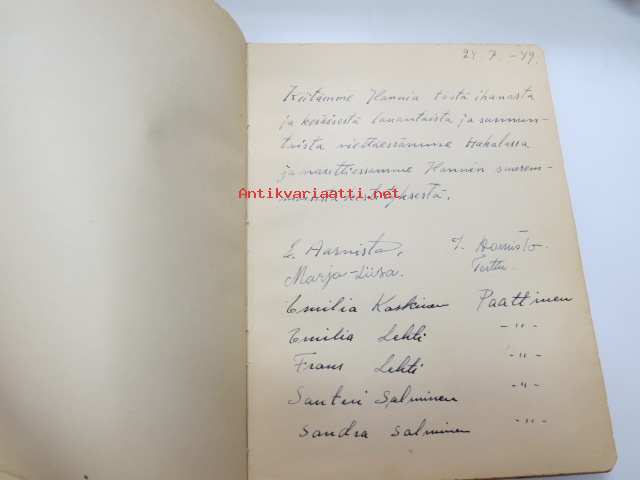 24. 7. -49.
Kiitämme Hannia tästä ihanasta
ja keväisestä lauantaista ja sunnun-
taista viettäessämme Hakalassa
ja nauttiessamme Hannin suurem-
Antikvariaatti.net
E. Aarnisto.
Marja-Liisa. Terttu.
Emilia Koskinen Paattinen
Emilia Lehti -"-
Frans Lehti -"-
Santeri Salminen -"-
Sandra Salminen -"-